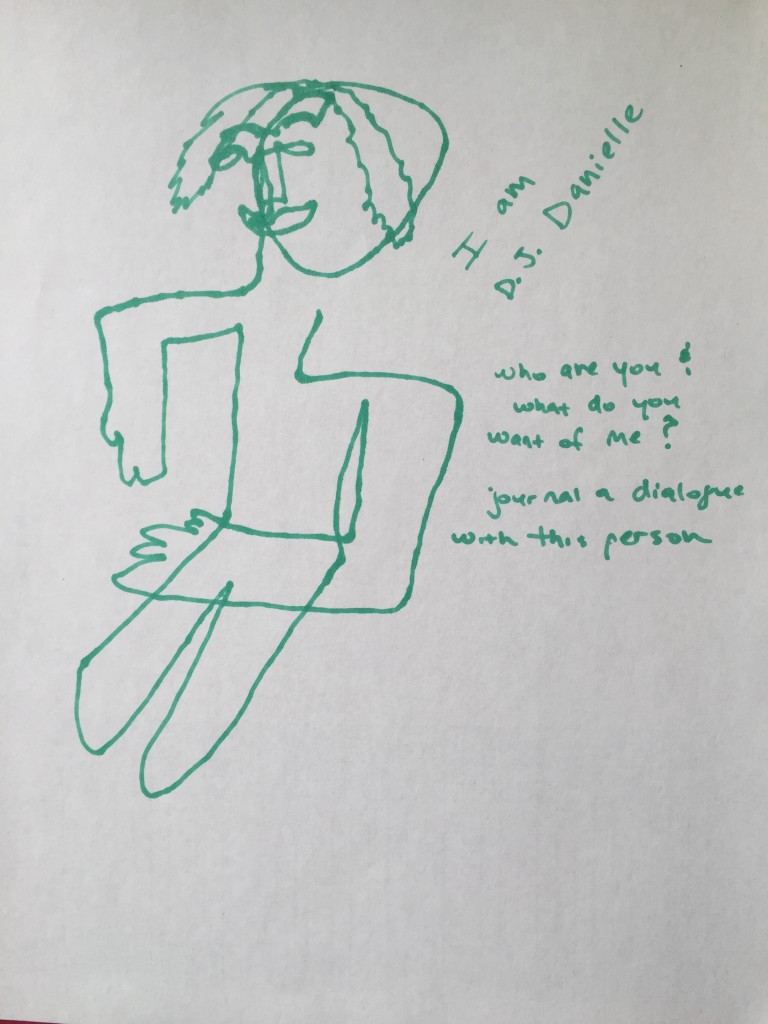 I am
D.J. Danielle
who are you &
what do you
want of me?
journal a dialogue
with this person